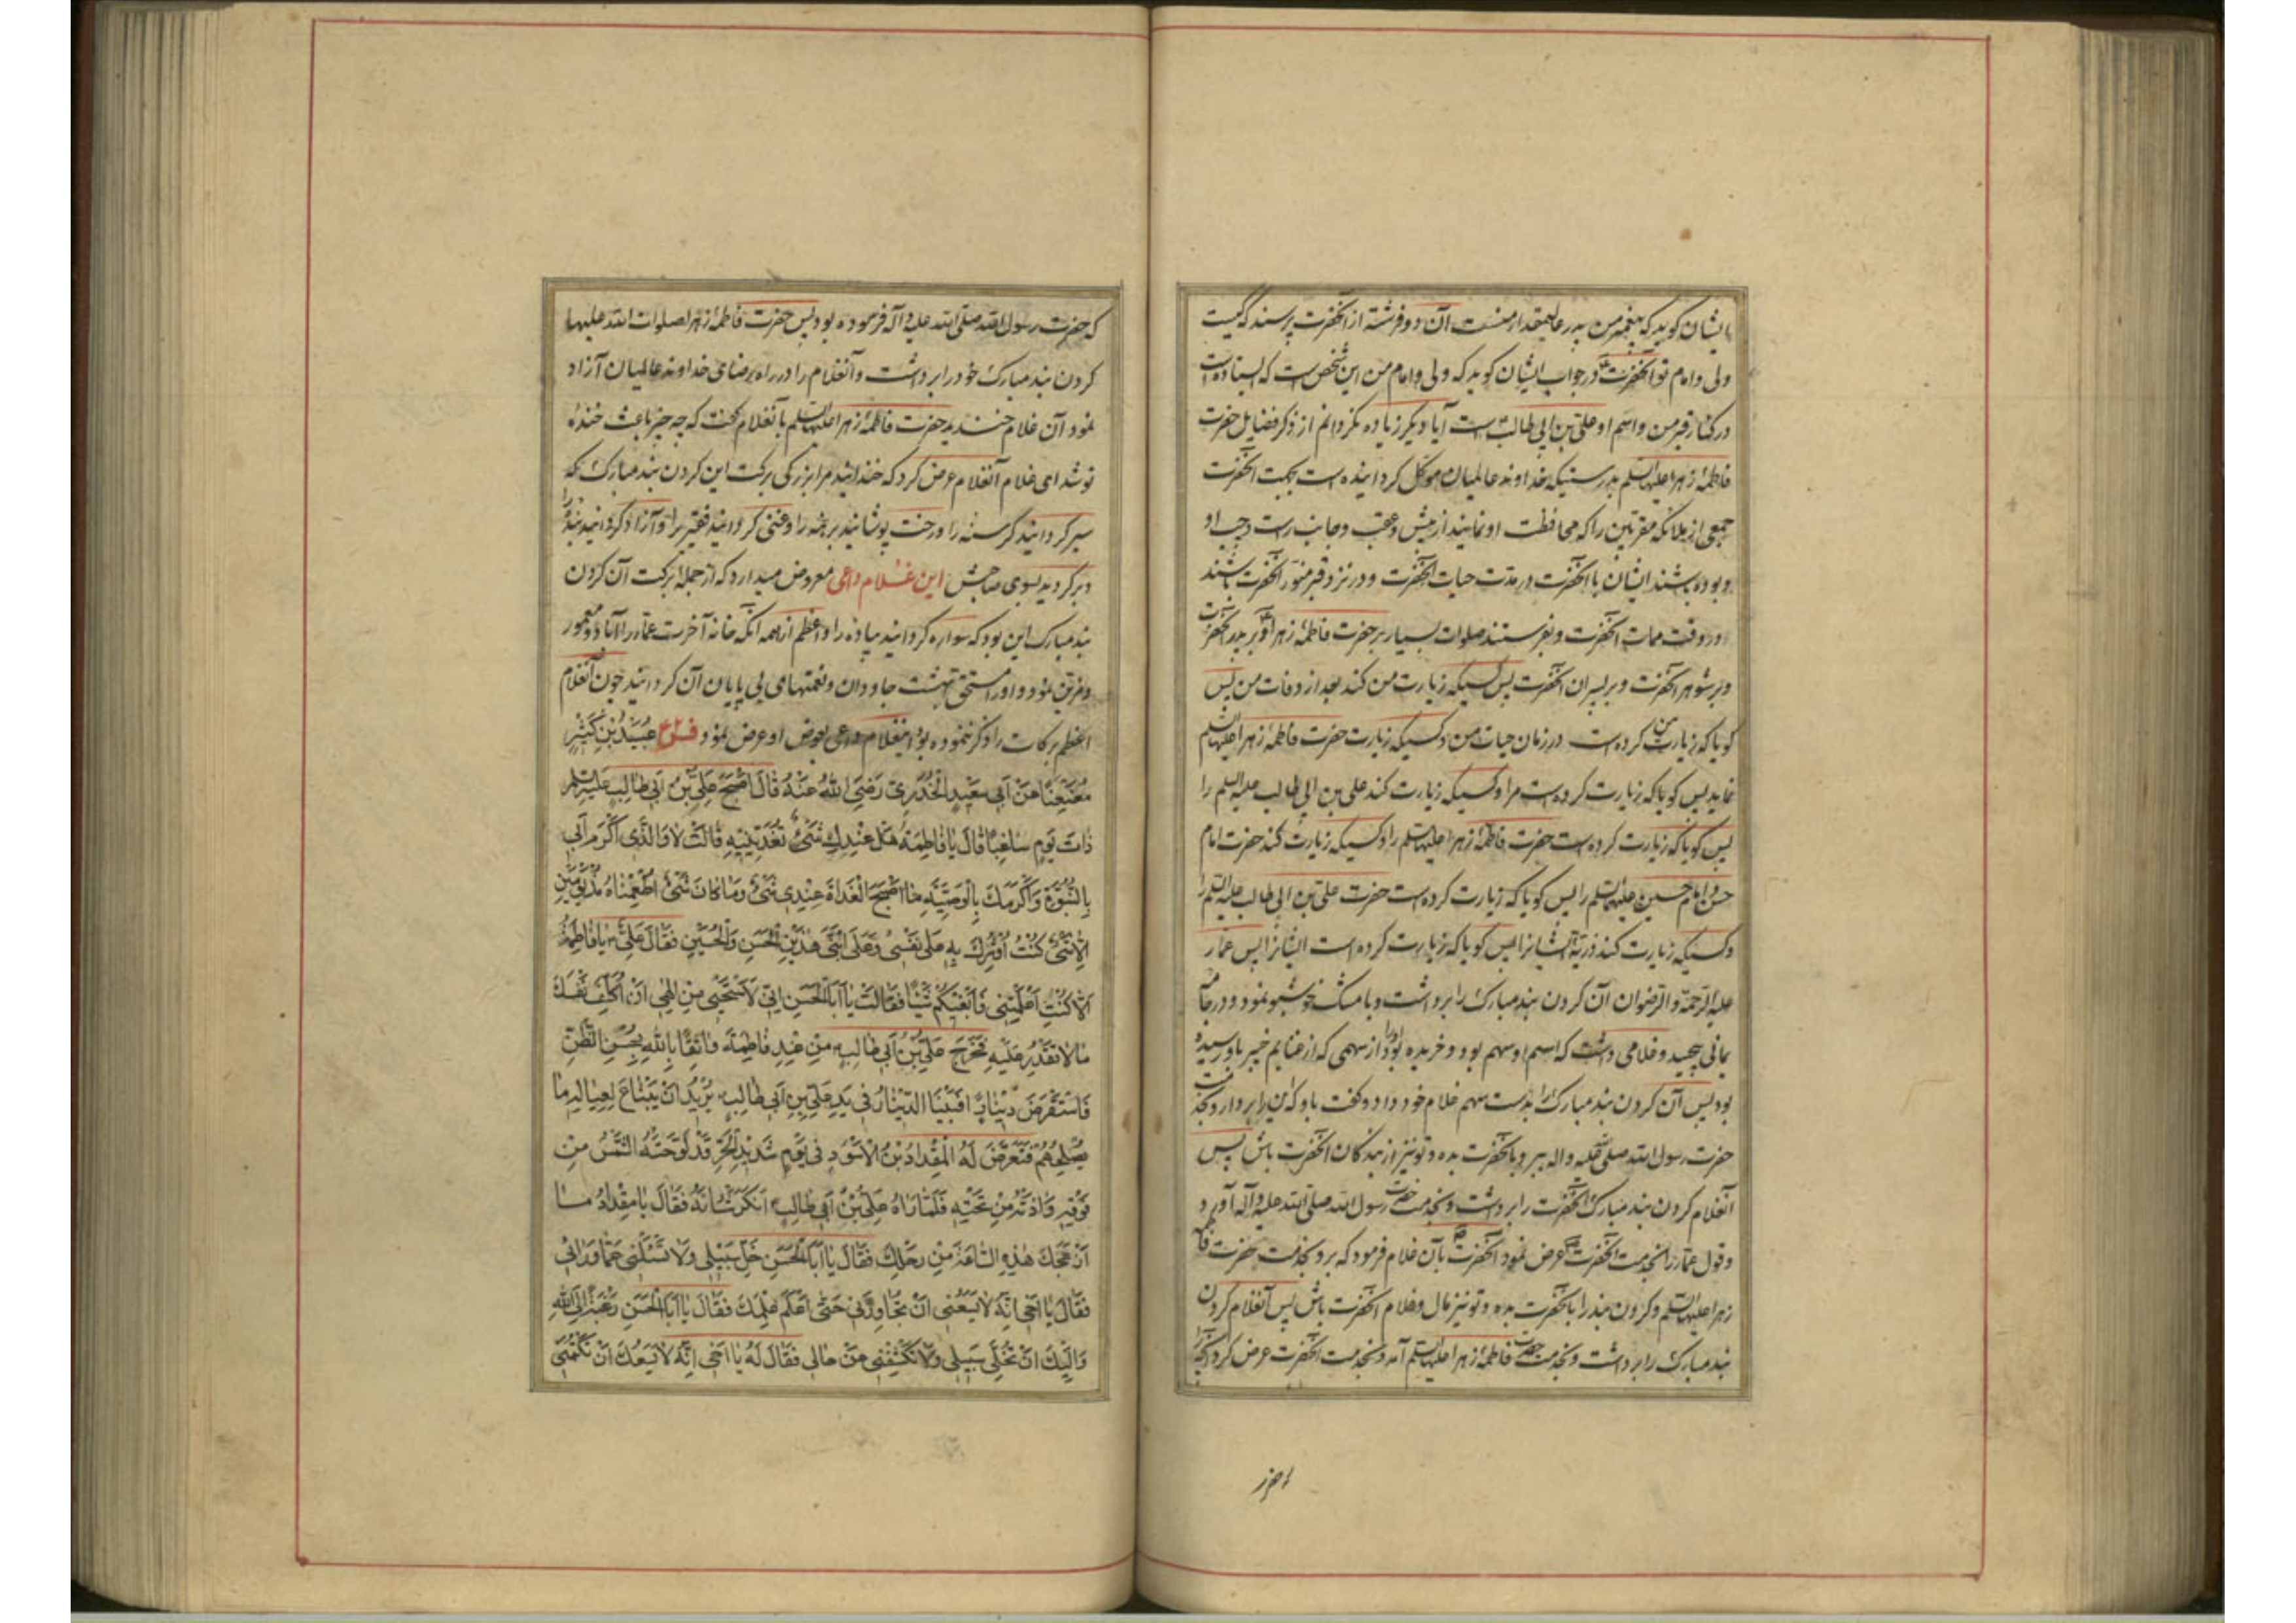 بایشان گوید که پیغمبر من پدر عالیمقدار منست آن دو فرشته از آنحضرت پرسند که کیست
ولی و امام تو آنحضرت در جواب ایشان گوید که ولی و امام من این شخص است که ایستاده است
در کنار قبر من و اسم او علی بن ابی طالب است آیا دیگر زیاده نگردانم از ذکر فضایل حضرت
فاطمهٔ زهرا علیها السلم بدرستیکه خداوند عالمیان موکل گردانیده است بجهت آنحضرت
جمعی از ملائکه مقربین را که محافظت او نمایند از پیش و عقب و جانب راست و چپ او
و بوده باشند ایشان با آنحضرت در مدت حیات آنحضرت و در نزد قبر منور آنحضرت باشند
در وقت ممات آنحضرت و بفرستند صلوات بسیار بر حضرت فاطمهٔ زهرا و بر پدر آنحضرت
و بر شوهر آنحضرت و بر پسران آنحضرت پس کسیکه زیارت من کند بعد از وفات من پس
گویا که زیارت من کرده است در زمان حیات من و کسیکه زیارت حضرت فاطمهٔ زهرا علیها السلم
نماید پس گویا که زیارت کرده است مرا و کسیکه زیارت کند علی بن ابی طالب علیه السلم را
پس گویا که زیارت کرده است حضرت فاطمهٔ زهرا علیها السلم را و کسیکه زیارت کند حضرت امام
حسن و امام حسین علیهما السلم را پس گویا که زیارت کرده است حضرت علی بن ابی طالب علیه السلم را
و کسیکه زیارت کند ذریّهٔ ایشانرا پس گویا که زیارت کرده است ایشانرا پس عمار
علیه الرحمة و الرضوان آن گردن بند مبارک را برداشت و با مشک خوشبو نمود و در جامه
یمانی پیچید و غلامی داشت که اسم او سهم بود و خریده بود او را از سهمی که از غنایم خیبر باو رسیده
بود پس آن گردن بند مبارک را بدست سهم غلام خود داد و گفت باو که این را بردار و بخدمت
حضرت رسول الله صلی الله علیه و اله ببر و بآنحضرت بده و تو نیز از بندگان آنحضرت باش پس
آنغلام گردن بند مبارک آنحضرت را برداشت و بخدمت حضرت رسول الله صلی الله علیه و آله آورد
و قول عمار را بخدمت آنحضرت عرض نمود آنحضرت بآن غلام فرمود که برو بخدمت حضرت فاطمهٔ
زهرا علیها السلم و گردن بند را بآنحضرت بده و تو نیز مال و غلام آنحضرت باش پس آنغلام گردن
بند مبارک را برداشت و بخدمت حضرت فاطمهٔ زهرا علیها السلم آمد و بخدمت آنحضرت عرض کرد آنچه را
که حضرت رسول الله صلی الله علیه و آله فرموده بود پس حضرت فاطمهٔ زهرا صلوات الله علیها
گردن بند مبارک خود را برداشت و آنغلام را در راه رضای خداوند عالمیان آزاد
نمود آن غلام خندید حضرت فاطمهٔ زهرا علیها السلم بآنغلام گفت که چه چیز باعث خندهٔ
تو شد ای غلام آنغلام عرض کرد که خندانید مرا بزرگی برکت این گردن بند مبارک که
سیر گردانید گرسنه را و رخت پوشانید برهنه را و غنی گردانید فقیر را و آزاد گردانید بندهٔ را
و برگردید بسوی صاحبش این غلام داعی معروض میدارد که از جملهٔ برکت آن گردن
بند مبارک این بود که سواره گردانید پیاده را و اعظم از همه آنکه خانهٔ آخرت عمار را آباد و معمور
و مزین نمود و او را مستحق بهشت جاودان و نعمتهای بی پایان آن گردانید چون آنغلام
اعظم برکات را ذکر ننموده بود اینغلام داعی بعوض او عرض نمود فرع عُبَیْدُ بْنُ کَثیرٍ
مُعَنْعَنًا عَنْ أَبی سَعیدٍ الْخُدْرِیِّ رَضِیَ اللهُ عَنْهُ قالَ أَصْبَحَ عَلِیُّ بْنُ أَبی طالِبٍ عَلَیْهِ السَّلم
ذاتَ یَوْمٍ ساغِبًا فَقالَ یا فاطِمَةُ هَلْ عِنْدَكِ شَیْءٌ تُغَدّینیهِ قالَتْ لا وَالَّذی أَکْرَمَ أَبی
بِالنُّبُوَّةِ وَأَکْرَمَكَ بِالْوَصِیَّةِ ما أَصْبَحَ الْغَداةَ عِنْدی شَیْءٌ وَما کانَ شَیْءٌ أَطْعَمْناهُ مُذْ یَوْمَیْنِ
إِلّا شَیْءٌ کُنْتُ أُوثِرُكَ بِهِ عَلی نَفْسی وَعَلَی ابْنَیَّ هٰذَیْنِ الْحَسَنِ وَالْحُسَیْنِ فَقالَ عَلِیٌّ یا فاطِمَةُ
أَلا کُنْتِ أَعْلَمْتِنی فَأَبْغیکُمْ شَیْئًا فَقالَتْ یا أَبَا الْحَسَنِ إِنّی لَأَسْتَحْیی مِنْ إِلٰهی أَنْ أُکَلِّفَ نَفْسَكَ
ما لا تَقْدِرُ عَلَیْهِ فَخَرَجَ عَلِیُّ بْنُ أَبی طالِبٍ مِنْ عِنْدِ فاطِمَةَ واثِقًا بِاللهِ بِحُسْنِ الظَّنِّ
فَاسْتَقْرَضَ دینارًا فَبَیْنَا الدّینارُ فی یَدِ عَلِیِّ بْنِ أَبی طالِبٍ یُریدُ أَنْ یَبْتاعَ لِعِیالِهِ ما
یُصْلِحُهُمْ فَتَعَرَّضَ لَهُ الْمِقْدادُ بْنُ الْأَسْوَدِ فی یَوْمٍ شَدیدِ الْحَرِّ قَدْ لَوَّحَتْهُ الشَّمْسُ مِنْ
فَوْقِهِ وَآذَتْهُ مِنْ تَحْتِهِ فَلَمّا رَآهُ عَلِیُّ بْنُ أَبی طالِبٍ أَنْکَرَ شَأْنَهُ فَقالَ یا مِقْدادُ ما
أَزْعَجَكَ هٰذِهِ السّاعَةَ مِنْ رَحْلِكَ فَقالَ یا أَبَا الْحَسَنِ خَلِّ سَبیلی وَلا تَسْئَلْنی عَمّا وَرائی
فَقالَ یا أَخی إِنَّهُ لا یَسَعُنی أَنْ تُجاوِزَنی حَتّی أَعْلَمَ عِلْمَكَ فَقالَ یا أَبَا الْحَسَنِ رَغْبَةً إِلَی اللهِ
وَإِلَیْكَ أَنْ تُخَلِّیَ سَبیلی وَلا تَکْشِفَنی عَنْ حالی فَقالَ لَهُ یا أَخی إِنَّهُ لا یَسَعُكَ أَنْ تَکْتُمَنی